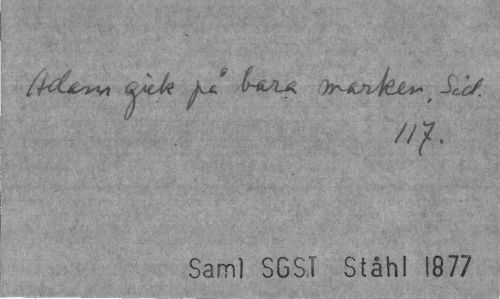 Adam gick på bara marken, Sid.
117.
Saml SGST Ståhl 1877